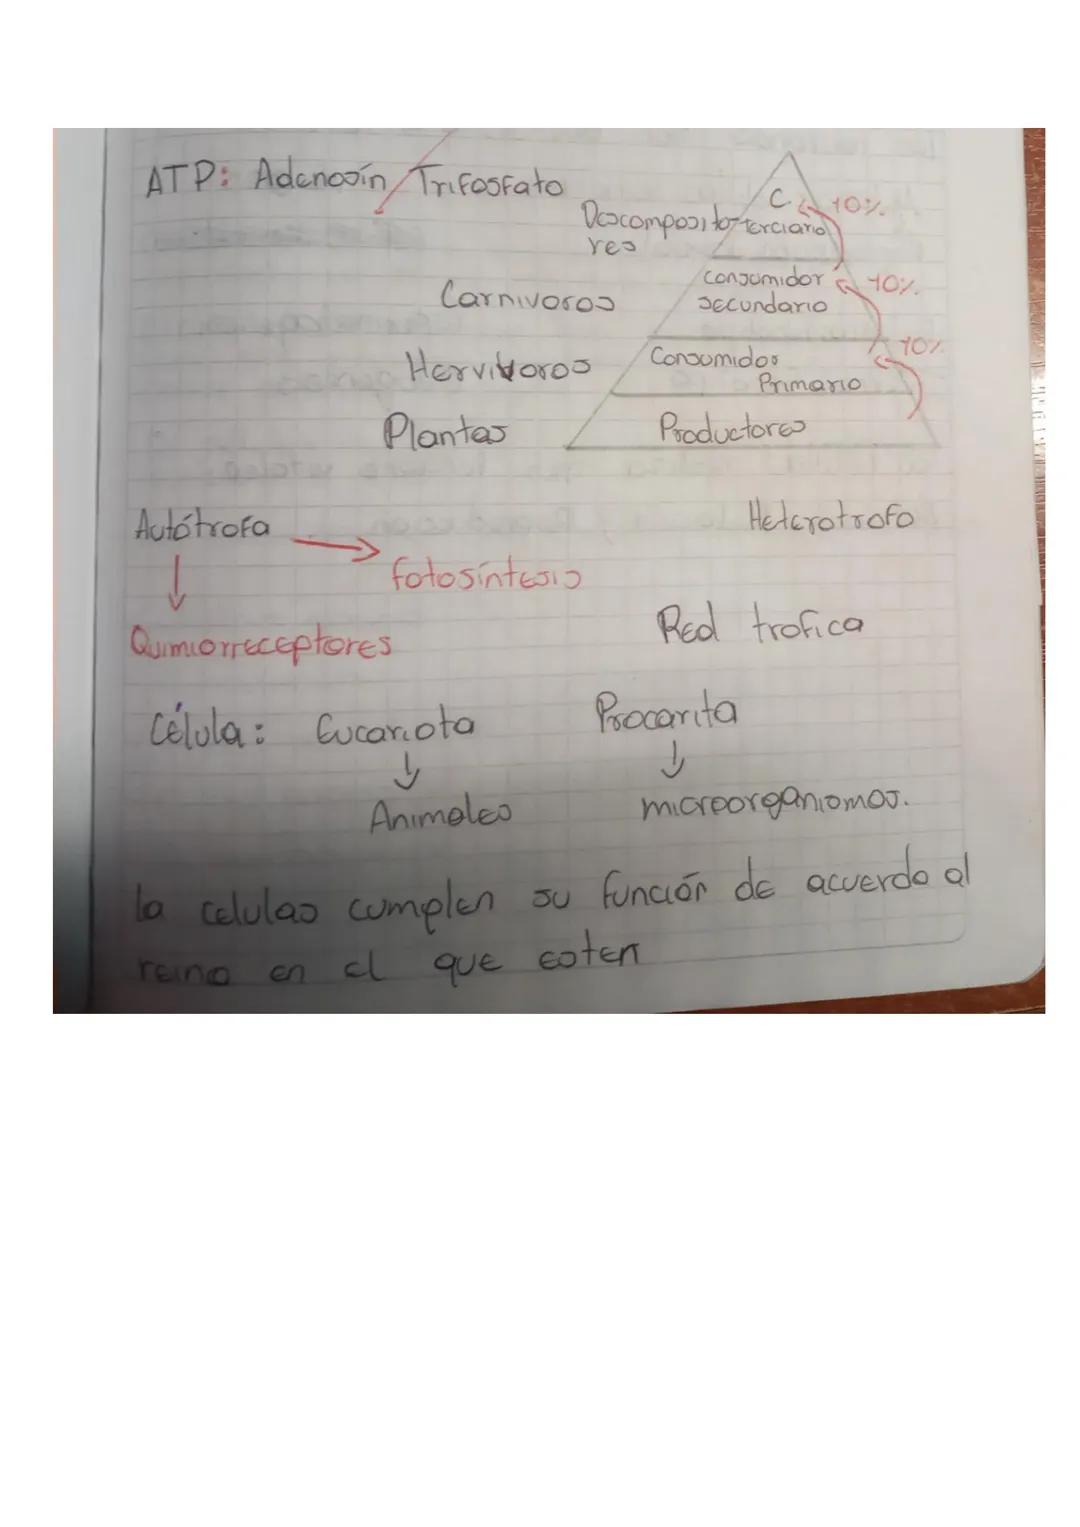 ATP: Adenosín Trifosfato
C. 10%
Descomposito- terciario
res
Consumidor 10%
Carnivoros secundario
10%
Hervivoros Consumidor
Primario
Plantas Productores
Autótrofa Heterotrofo
fotosíntesis
Quimiorreceptores Red trofica
Célula: Eucariota Procarita
Animales microorganismos.
la celulas cumplen su función de acuerdo al
reino en el que esten